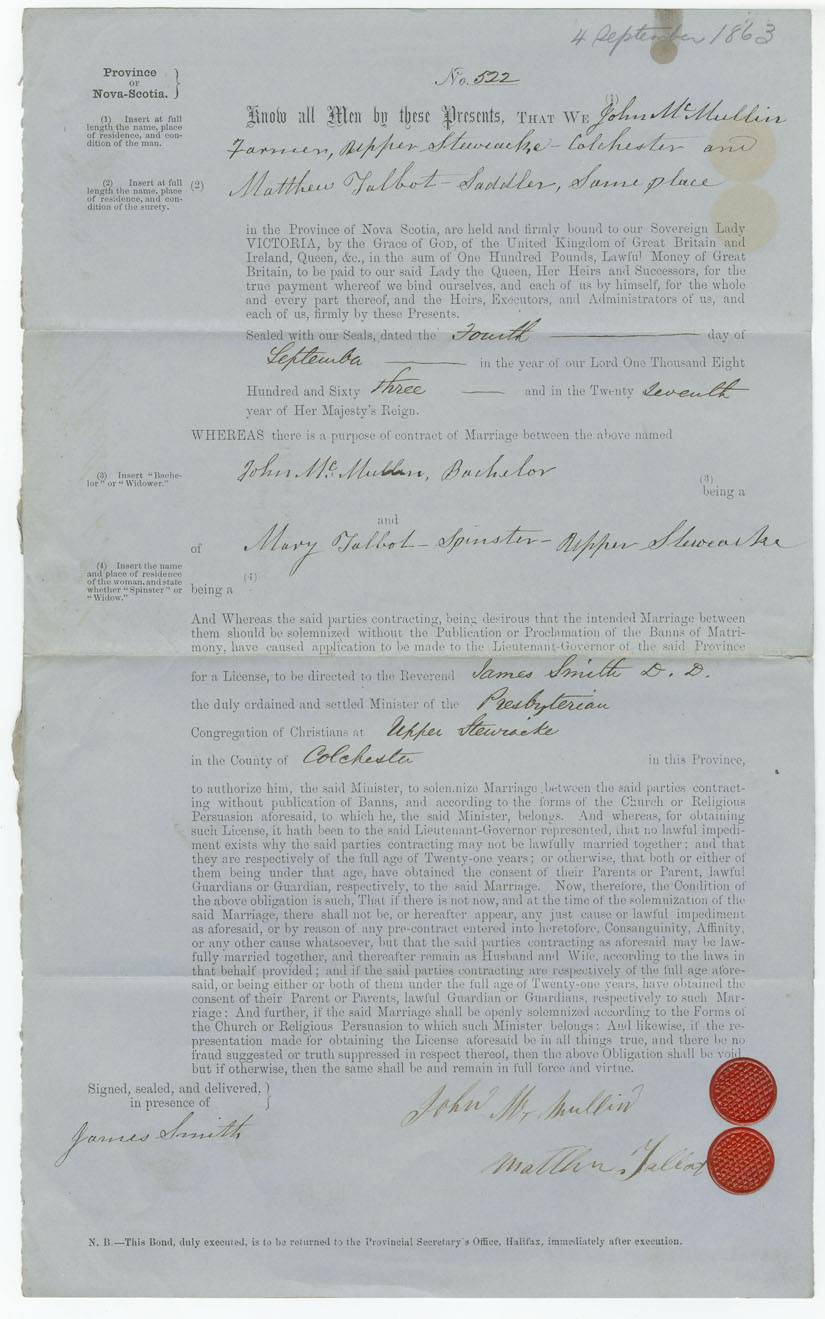 4 September 1863
Province
OF
Nova-Scotia.
No. 522
(1) Insert at full
length the name, place
of residence, and con-
dition of the man.
(1)
Know all Men by these Presents, THAT WE John McMullin
Farmer, Upper Stewiacke - Colchester and
(2) Insert at full
length the name, place
of residence, and con-
dition of the surety.
(2) Matthew Talbot - Saddler, Same place
in the Province of Nova Scotia, are held and firmly bound to our Sovereign Lady
VICTORIA, by the Grace of GOD, of the United Kingdom of Great Britain and
Ireland, Queen, &c., in the sum of One Hundred Pounds, Lawful Money of Great
Britain, to be paid to our said Lady the Queen, Her Heirs and Successors, for the
true payment whereof we bind ourselves, and each of us by himself, for the whole
and every part thereof, and the Heirs, Executors, and Administrators of us, and
each of us, firmly by these Presents.
Sealed with our Seals, dated the Fourth day of
September in the year of our Lord One Thousand Eight
Hundred and Sixty three and in the Twenty seventh
year of Her Majesty's Reign.
WHEREAS there is a purpose of contract of Marriage between the above named
(3) Insert "Bache-
lor" or "Widower."
John McMullin, Bachelor
(3)
being a
and
of Mary Talbot - Spinster - Upper Stewiacke
(4) Insert the name
and place of residence
of the woman, and state
whether "Spinster" or
"Widow."
(4)
being a
And Whereas the said parties contracting, being desirous that the intended Marriage between
them should be solemnized without the Publication or Proclamation of the Banns of Matri-
mony, have caused application to be made to the Lieutenant-Governor of the said Province
for a License, to be directed to the Reverend James Smith D. D.
the duly ordained and settled Minister of the Presbyterian
Congregation of Christians at Upper Stewiacke
in the County of Colchester in this Province,
to authorize him, the said Minister, to solemnize Marriage between the said parties contract-
ing without publication of Banns, and according to the forms of the Church or Religious
Persuasion aforesaid, to which he, the said Minister, belongs. And whereas, for obtaining
such License, it hath been to the said Lieutenant-Governor represented, that no lawful impedi-
ment exists why the said parties contracting may not be lawfully married together; and that
they are respectively of the full age of Twenty-one years; or otherwise, that both or either of
them being under that age, have obtained the consent of their Parents or Parent, lawful
Guardians or Guardian, respectively, to the said Marriage. Now, therefore, the Condition of
the above obligation is such, That if there is not now, and at the time of the solemnization of the
said Marriage, there shall not be, or hereafter appear, any just cause or lawful impediment
as aforesaid, or by reason of any pre-contract entered into heretofore, Consanguinity, Affinity,
or any other cause whatsoever, but that the said parties contracting as aforesaid may be law-
fully married together, and thereafter remain as Husband and Wife, according to the laws in
that behalf provided; and if the said parties contracting are respectively of the full age afore-
said, or being either or both of them under the full age of Twenty-one years, have obtained the
consent of their Parent or Parents, lawful Guardian or Guardians, respectively to such Mar-
riage: And further, if the said Marriage shall be openly solemnized according to the Forms of
the Church or Religious Persuasion to which such Minister belongs: And likewise, if the re-
presentation made for obtaining the License aforesaid be in all things true, and there be no
fraud suggested or truth suppressed in respect thereof, then the above Obligation shall be void
but if otherwise, then the same shall be and remain in full force and virtue.
Signed, sealed, and delivered,
in presence of
James Smith
John McMullin
Matthew Talbot
N. B.—This Bond, duly executed, is to be returned to the Provincial Secretary's Office, Halifax, immediately after execution.